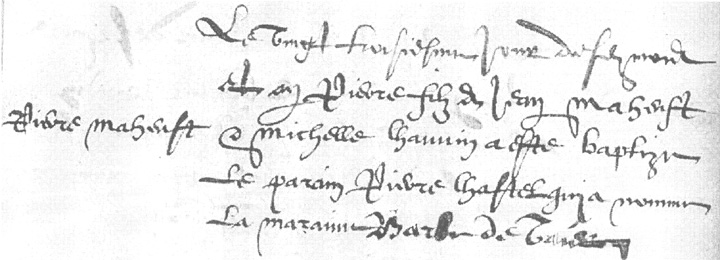 Le vingt troisiesme jour desdz mois
et an Pierre filz de Jean Maheust
Pierre maheust
& michelle chauvin a este baptize
Le parain Pierre chastel qui a nomme
La maraine Barbe de